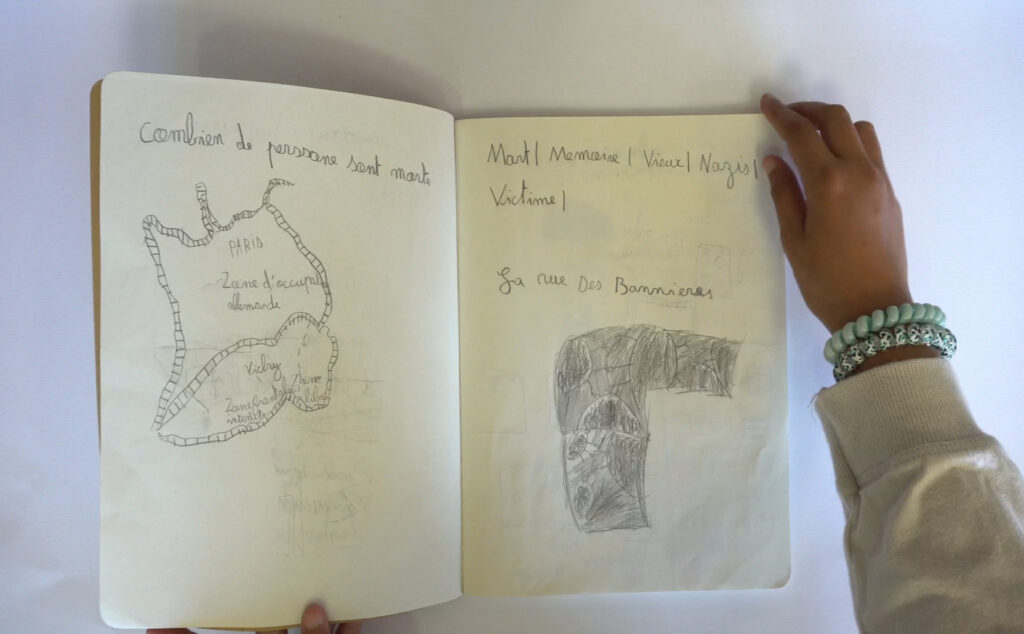 Combien de perssone sont morte
PARIS
Zone d'occupat
allemande
Vichy
Zone
libre
Mort | Memoire | Vieux | Nazis |
Victime |
La rue Des Bannieres